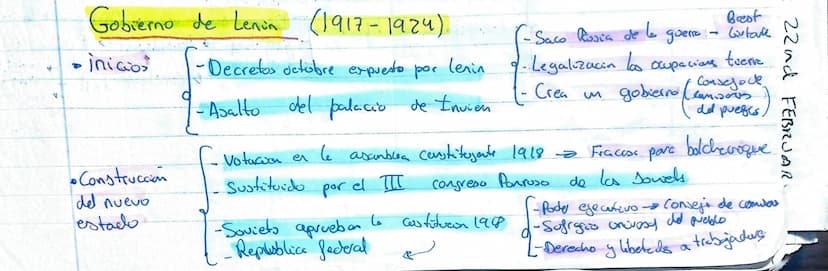 Gobierno de Lenin (1917-1924)
• inicios
- Decretos octubre expuesto por Lenin
- Asalto del palacio de Invien
- Saca Russia de la guerra - Brest Listovk
- Legalización las ocupaciones tierra
- Crea un gobierno (Consejo de comisarios del pueblo)
22nd FEBRUAR
• Construcción del nuevo estado
- Votacion en la asamblea constituyente 1918 → Fracaso para bolchevique
- Sustituido por el III congreso Panruso de los Soviets
- Soviets aprueban la constitucion 1918
- República federal
- Poder ejecutivo → Consejo de comisarios
- Sufragio universal del pueblo
- Derecho y libertades a trabajadores